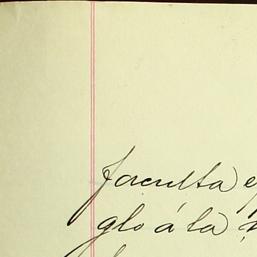 faculta
glo á la